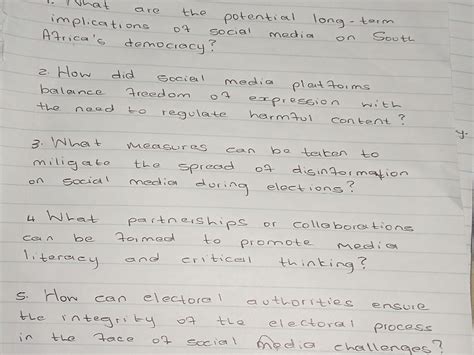 1. What are the potential long-term
implications of social media on South
Africa's democracy?
2. How did social media platforms
balance freedom of expression with
the need to regulate harmful content?
3. What measures can be taken to
miligate the spread of disinformation
on social media during elections?
4. What partnerships or collaborations
can be formed to promote media
literacy and critical thinking?
5. How can electoral authorities ensure
the integrity of the electoral process
in the face of social media challenges?